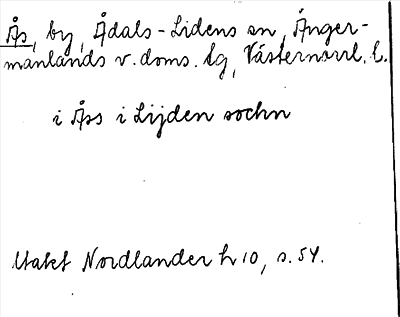 Ås, by, Ådals-Lidens sn, Ånger-
manlands v. doms. tg, Västernorrl. l.
i Åss i Lijden sochn
Utakt Nordlander h 10, s. 54.